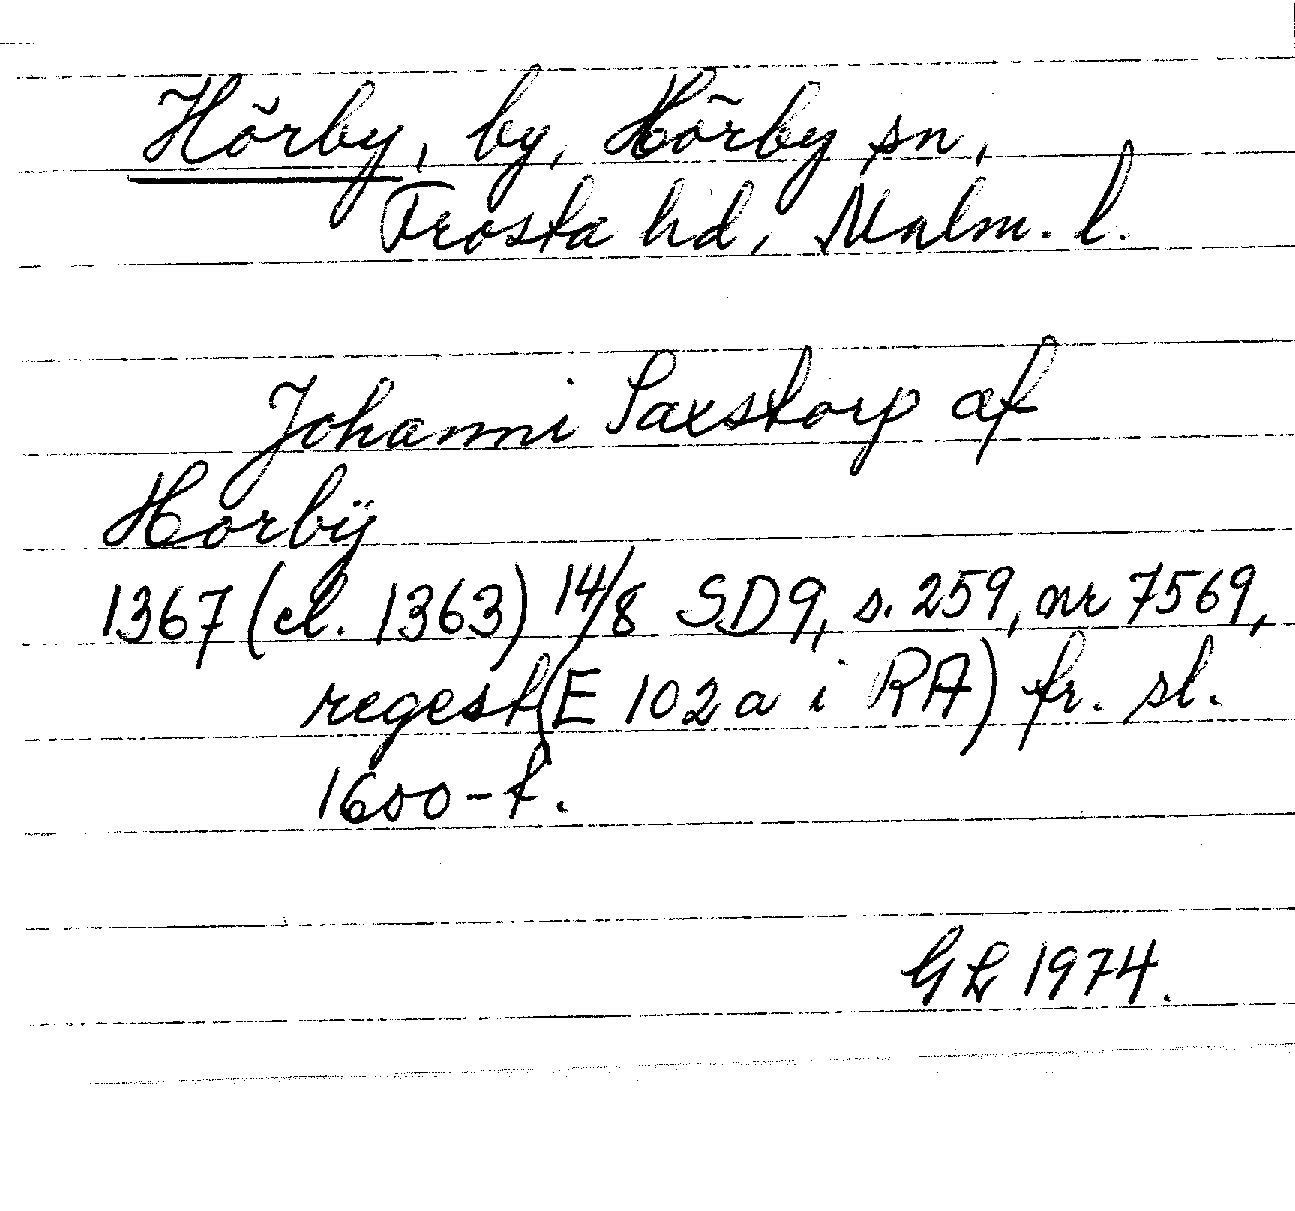 Hörby, by, Hörby sn,
Frosta hd, Malm. l.
Johanni Saxstorp af
Horbÿ
1367 (el. 1363) 14/8 SD9, s. 259, nr 7569,
regest (E 102 a i RA) fr. sl.
1600-t.
GL 1974.